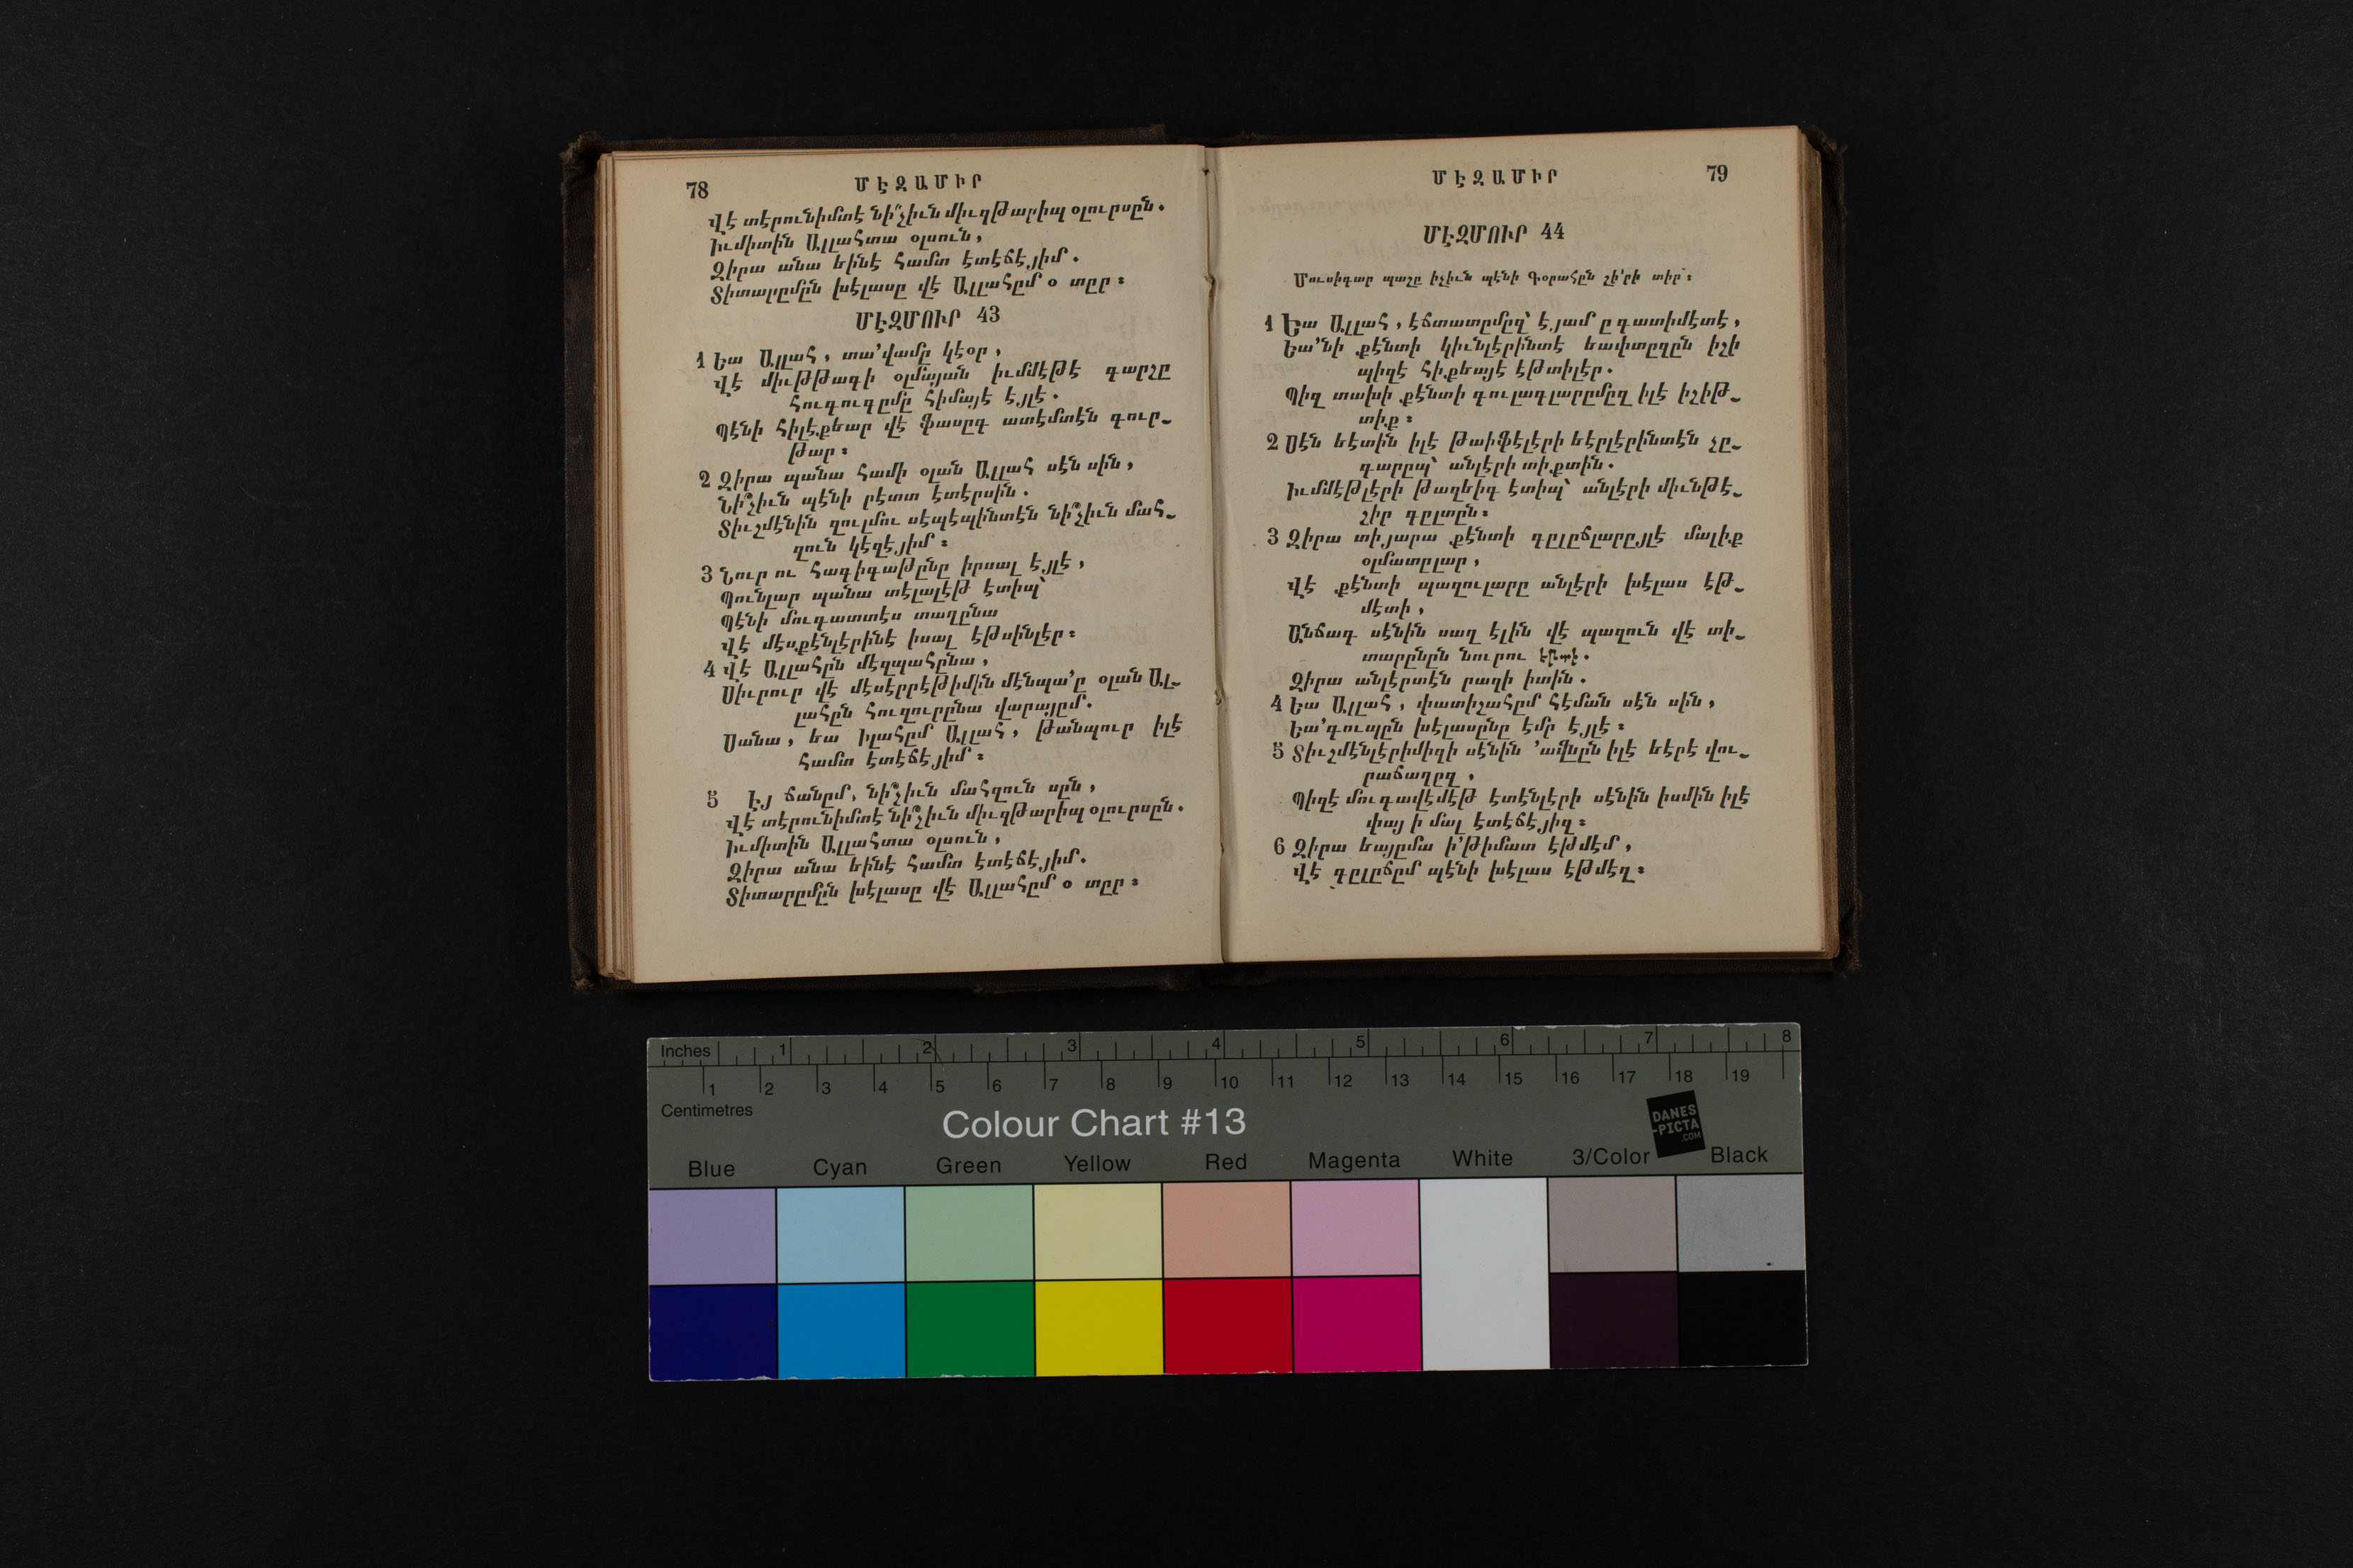 78
ՄԷԶԱՄԻՐ
Վէ տէրունիմտէ նի՞չիւն միւզթարիպ օլուրսըն.
Իւմիտին Ալլահտա օլսուն,
Զիրա անա եինէ համտ էտէճէյիմ.
Տիտարըմըն խէլասը վէ Ալլահըմ օ տըր։
ՄԷԶՄՈՒՐ 43
1 Եա Ալլահ, տա՚վամը կէօր,
Վէ միւթթագի օլմայան իւմմէթէ գարշը
հուգուգըմը հիմայէ էյլէ.
Պէնի հիլէքեար վէ ֆասըգ ատէմտէն գուր֊
թար։
2 Զիրա պանա համի օլան Ալլահ սէն սին,
Նի՞չիւն պէնի րէտտ էտէրսին.
Տիւշմէնին զուլմու սէպէպինտէն նի՞չիւն մահ֊
զուն կէզէյիմ։
3 Նուր ու հագիգաթընը իրսալ էյլէ,
Պունլար պանա տէլալէթ էտիպ՝
Պէնի մուգատտէս տաղընա
Վէ մէսքէնլէրինէ իսալ էթսինլէր։
4 Վէ Ալլահըն մէզպահընա,
Սիւրուր վէ մէսէրրէթիմին մէնպա՚ը օլան Ալ֊
լահըն հուզուրընա վարայըմ.
Սանա, եա Իլահըմ Ալլահ, թանպուր իլէ
համտ էտէճէյիմ։
5 Էյ ճանըմ, նի՞չիւն մահզուն սըն,
Վէ տէրունիմտէ նի՞չիւն միւզթարիպ օլուրսըն.
Իւմիտին Ալլահտա օլսուն,
Զիրա անա եինէ համտ էտէճէյիմ.
Տիտարըմըն խէլասը վէ Ալլահըմ օ տըր։
ՄԷԶԱՄԻՐ
79
ՄԷԶՄՈՒՐ 44
Մուսիգար պաշը իչիւն պէնի Գօրահըն շի՚րի տիր։
1 Եա Ալլահ, էճտատըմըզ՝ էյամ ը գատիմէտէ,
Եա՚նի քէնտի կիւնլէրինտէ եափտըղըն իշի
պիզէ հիքեայէ էթտիլէր.
Պիզ տախի քէնտի գուլագլարըմըզ իլէ իշիթ֊
տիք։
2 Սէն եէտին իլէ թաիֆէլէրի եէրլէրինտէն չը֊
գարըպ՝ անլէրի տիքտին.
Իւմմէթլէրի թազեիգ էտիպ՝ անլէրի միւնթէ֊
շիր գըլտըն։
3 Զիրա տիյարա քէնտի գըլըճլարըյլէ մալիք
օլմատըլար,
Վէ քէնտի պազուլարը անլէրի խէլաս էթ֊
մէտի,
Անճագ սէնին սաղ էլին վէ պազուն վէ տի֊
տարընըն նուրու էթտի.
Զիրա անլէրտէն րազի իտին.
4 Եա Ալլահ, փատիշահըմ հէման սէն սին,
Եա՚գուպըն խէլասընը էմր էյլէ։
5 Տիւշմէնլէրիմիզի սէնին ՚ավնըն իլէ եէրէ վու֊
րաճաղըզ,
Պիզէ մուգավէմէթ էտէնլէրի սէնին իսմին իլէ
փայ ի մալ էտէճէյիզ։
6 Զիրա եայըմա ի՚թիմատ էթմէմ,
Վէ գըլըճըմ պէնի խէլաս էթմէզ։
Inches 1 2 3 4 5 6 7 8
1 2 3 4 5 6 7 8 9 10 11 12 13 14 15 16 17 18 19
Centimetres
Colour Chart #13
DANES
-PICTA
.COM
Blue Cyan Green Yellow Red Magenta White 3/Color Black